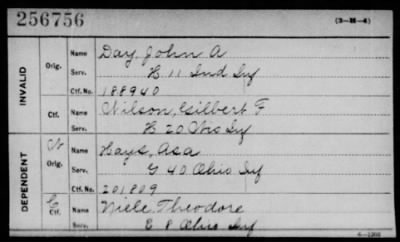 256756
(3—M—4)
INVALID
Orig.
Name Day, John A
Serv. H 11 Ind Inf
Ctf. No. 188940
Ctf.
Name Wilson, Gilbert F
Serv. H 20 Wis Inf
DEPENDENT
Orig.
Name Hays, Asa
Serv. G 40 Ohio Inf
Ctf. No. 201809
Ctf.
Name Niele Theodore
Serv. E 8 Ohio Inf